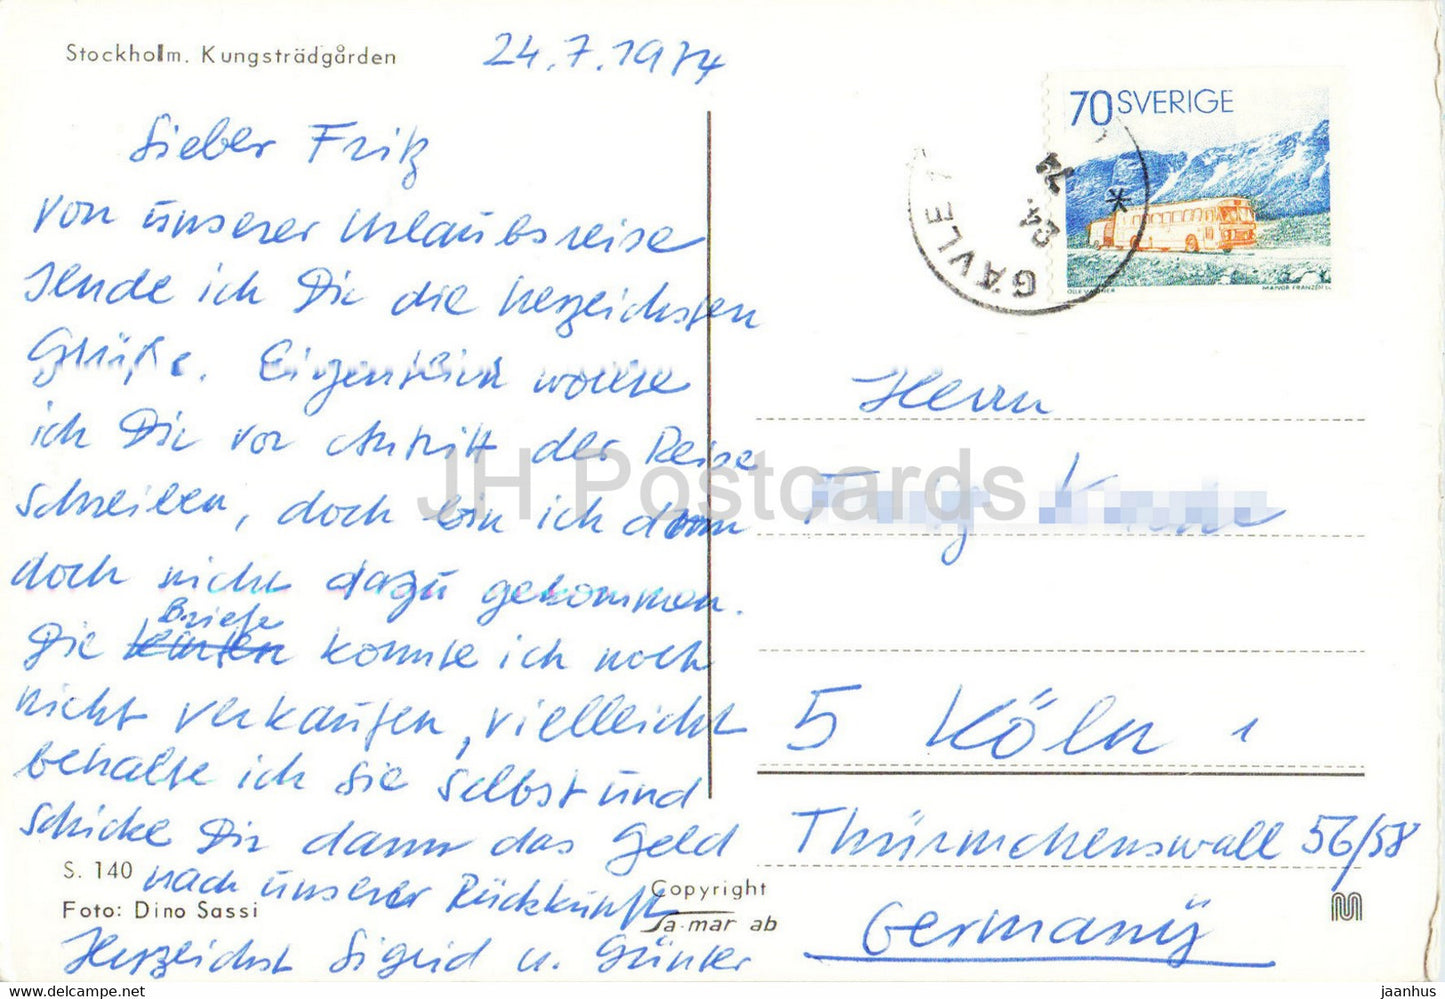 Stockholm. Kungsträdgården
24.7.1974
Lieber Fritz
von unserer Urlaubsreise
sende ich Dir die herzlichsten
Grüße. Eigentlich wollte
ich Dir vor Antritt der Reise
schreiben, doch bin ich dann
doch nicht dazu gekommen.
Briefe
Die karten konnte ich noch
nicht verkaufen, vielleicht
behalte ich sie selbst und
schicke Dir dann das Geld
nach unserer Rückkunft
Herzlichst Sigrid u. Günter
S. 140
Foto: Dino Sassi
Copyright
Sa-mar ab
70 SVERIGE
OLLE WAGNER
MAJVOR FRANZÉN
GÄVLE 1
74
Herrn
5 Köln 1
Thürmchenswall 56/58
Germany
M
JH Postcards
jaanhus - https://www.jaanhus.com